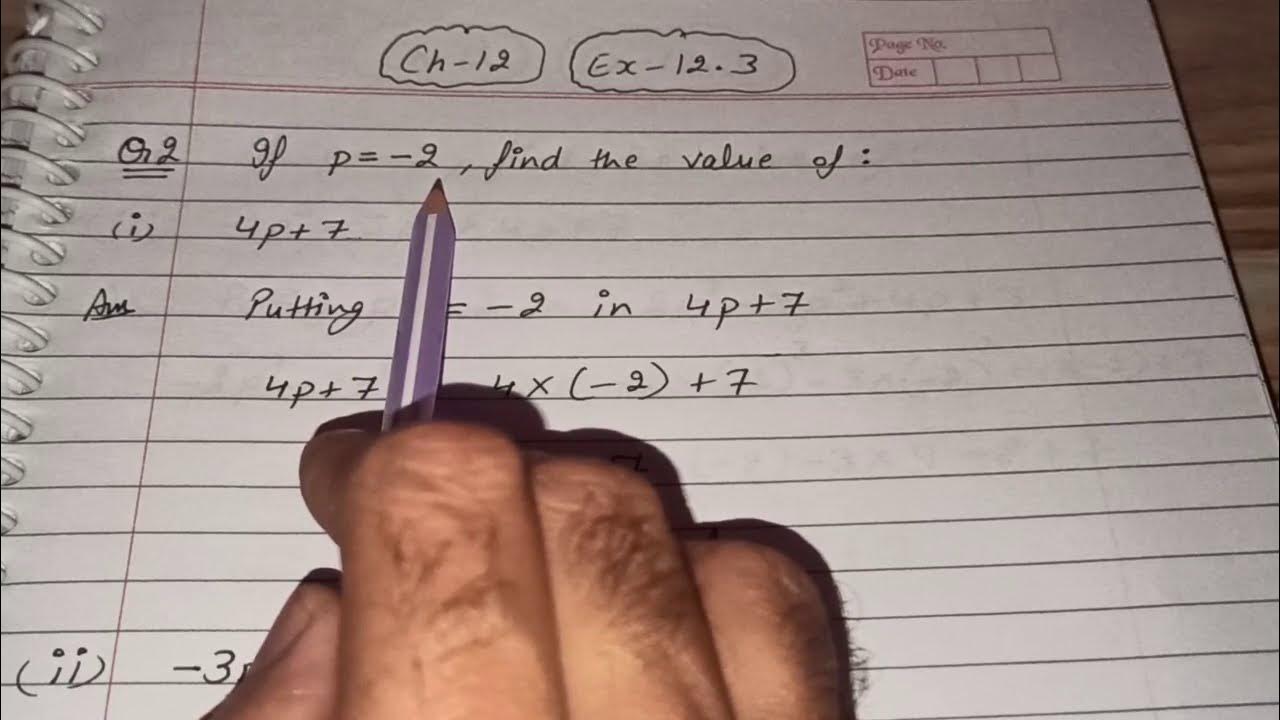 Ch-12 Ex-12.3
Page No.
Date
Qr2 If p=-2, find the value of:
(i) 4p+7
Ans Putting = -2 in 4p+7
4p+7 4×(-2)+7
7
(ii) -3p